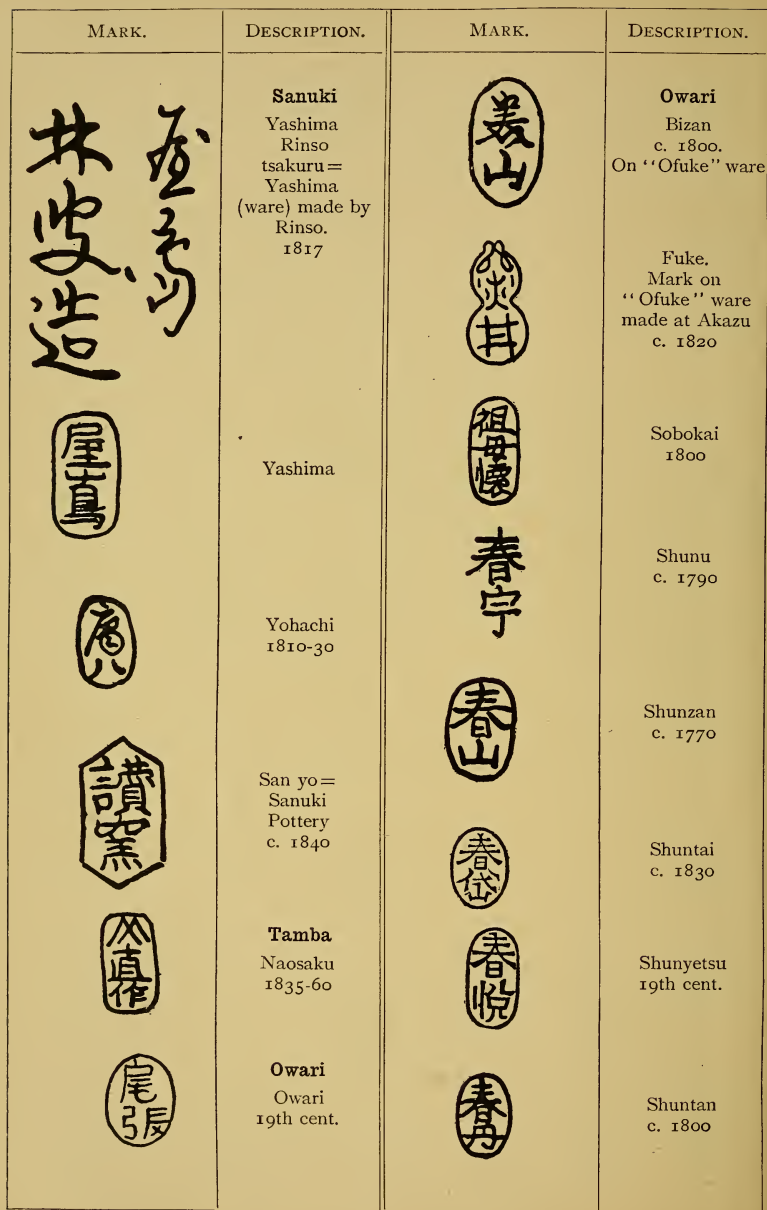 MARK.
DESCRIPTION.
MARK.
DESCRIPTION.
屋島
林叟造
Sanuki
Yashima
Rinso
tsakuru=
Yashima
(ware) made by
Rinso.
1817
屋島
Yashima
八
Yohachi
1810-30
讃窯
San yo=
Sanuki
Pottery
c. 1840
直作
Tamba
Naosaku
1835-60
尾張
Owari
Owari
19th cent.
美山
Owari
Bizan
c. 1800.
On "Ofuke" ware
Fuke.
Mark on
"Ofuke" ware
made at Akazu
c. 1820
祖母懐
Sobokai
1800
春宇
Shunu
c. 1790
春山
Shunzan
c. 1770
春岱
Shuntai
c. 1830
春悦
Shunyetsu
19th cent.
春丹
Shuntan
c. 1800